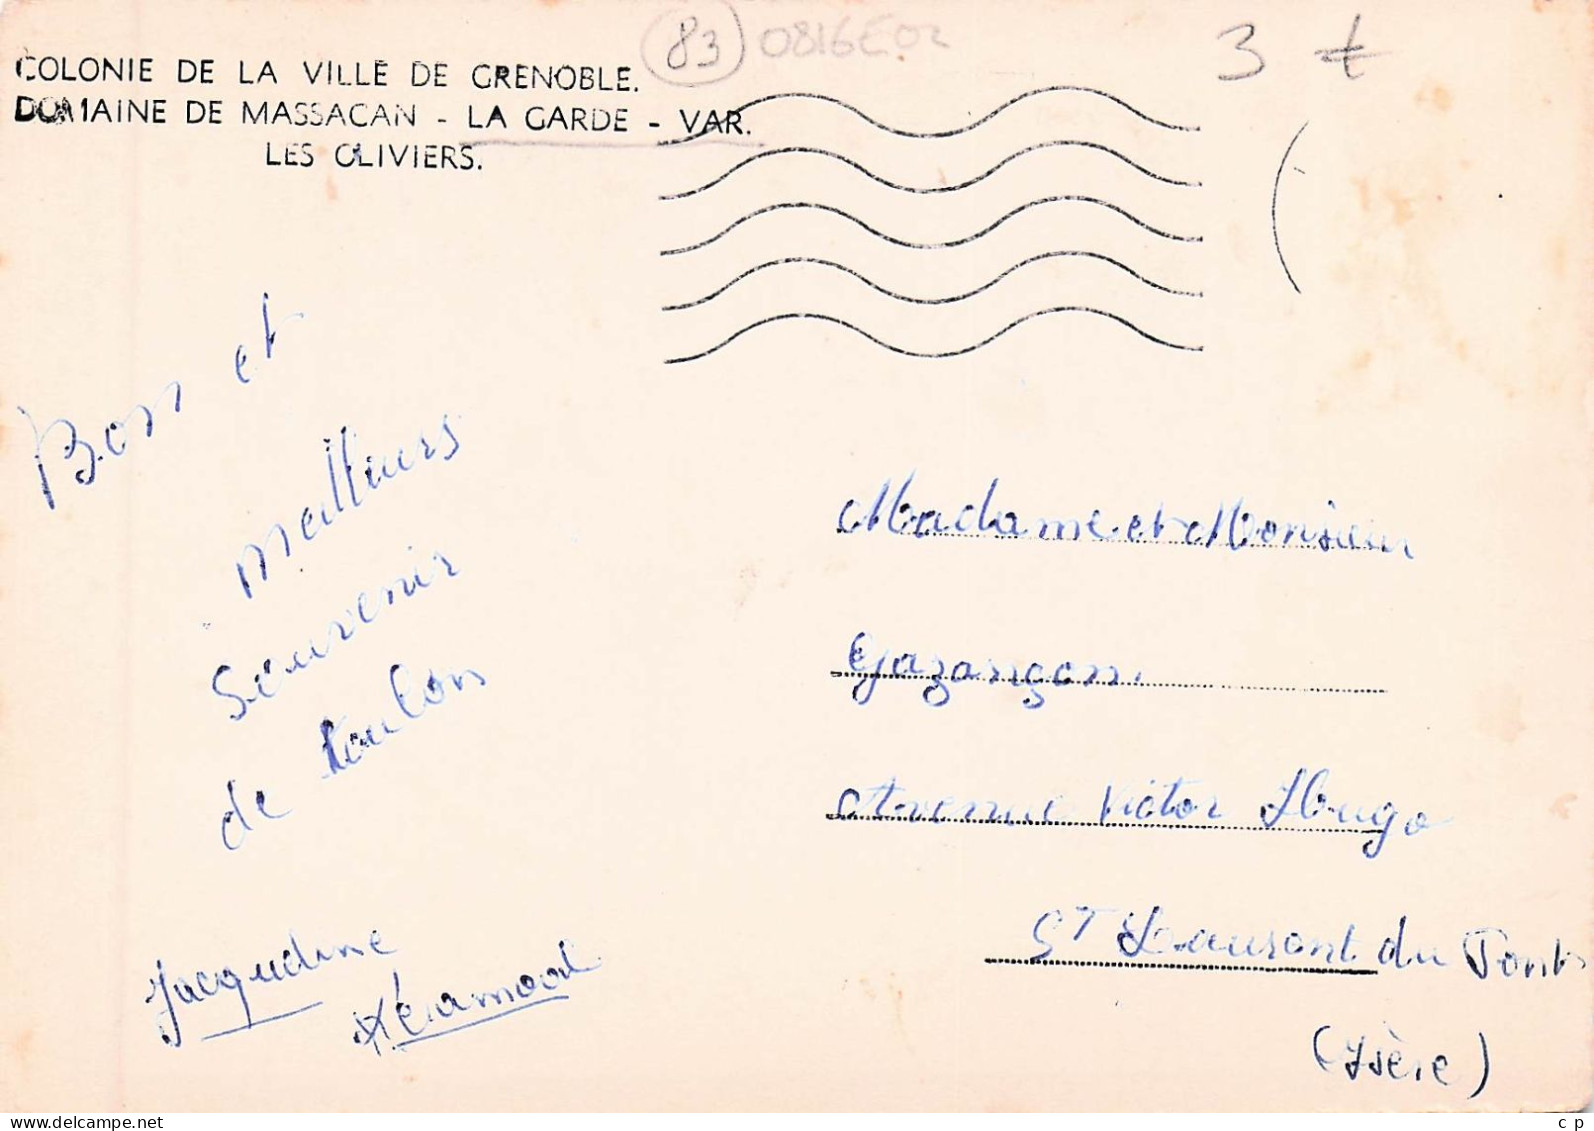 83 0816E02
3 €
COLONIE DE LA VILLE DE GRENOBLE.
DOMAINE DE MASSACAN - LA GARDE - VAR.
LES OLIVIERS.
Bon et
meilleurs
Souvenir
de toulon
Jacqueline
Madame et Monsieur
Gazançon.
Avenue Victor Hugo
ST Laurent du Pont
(Isère)
www.delcampe.net
c p